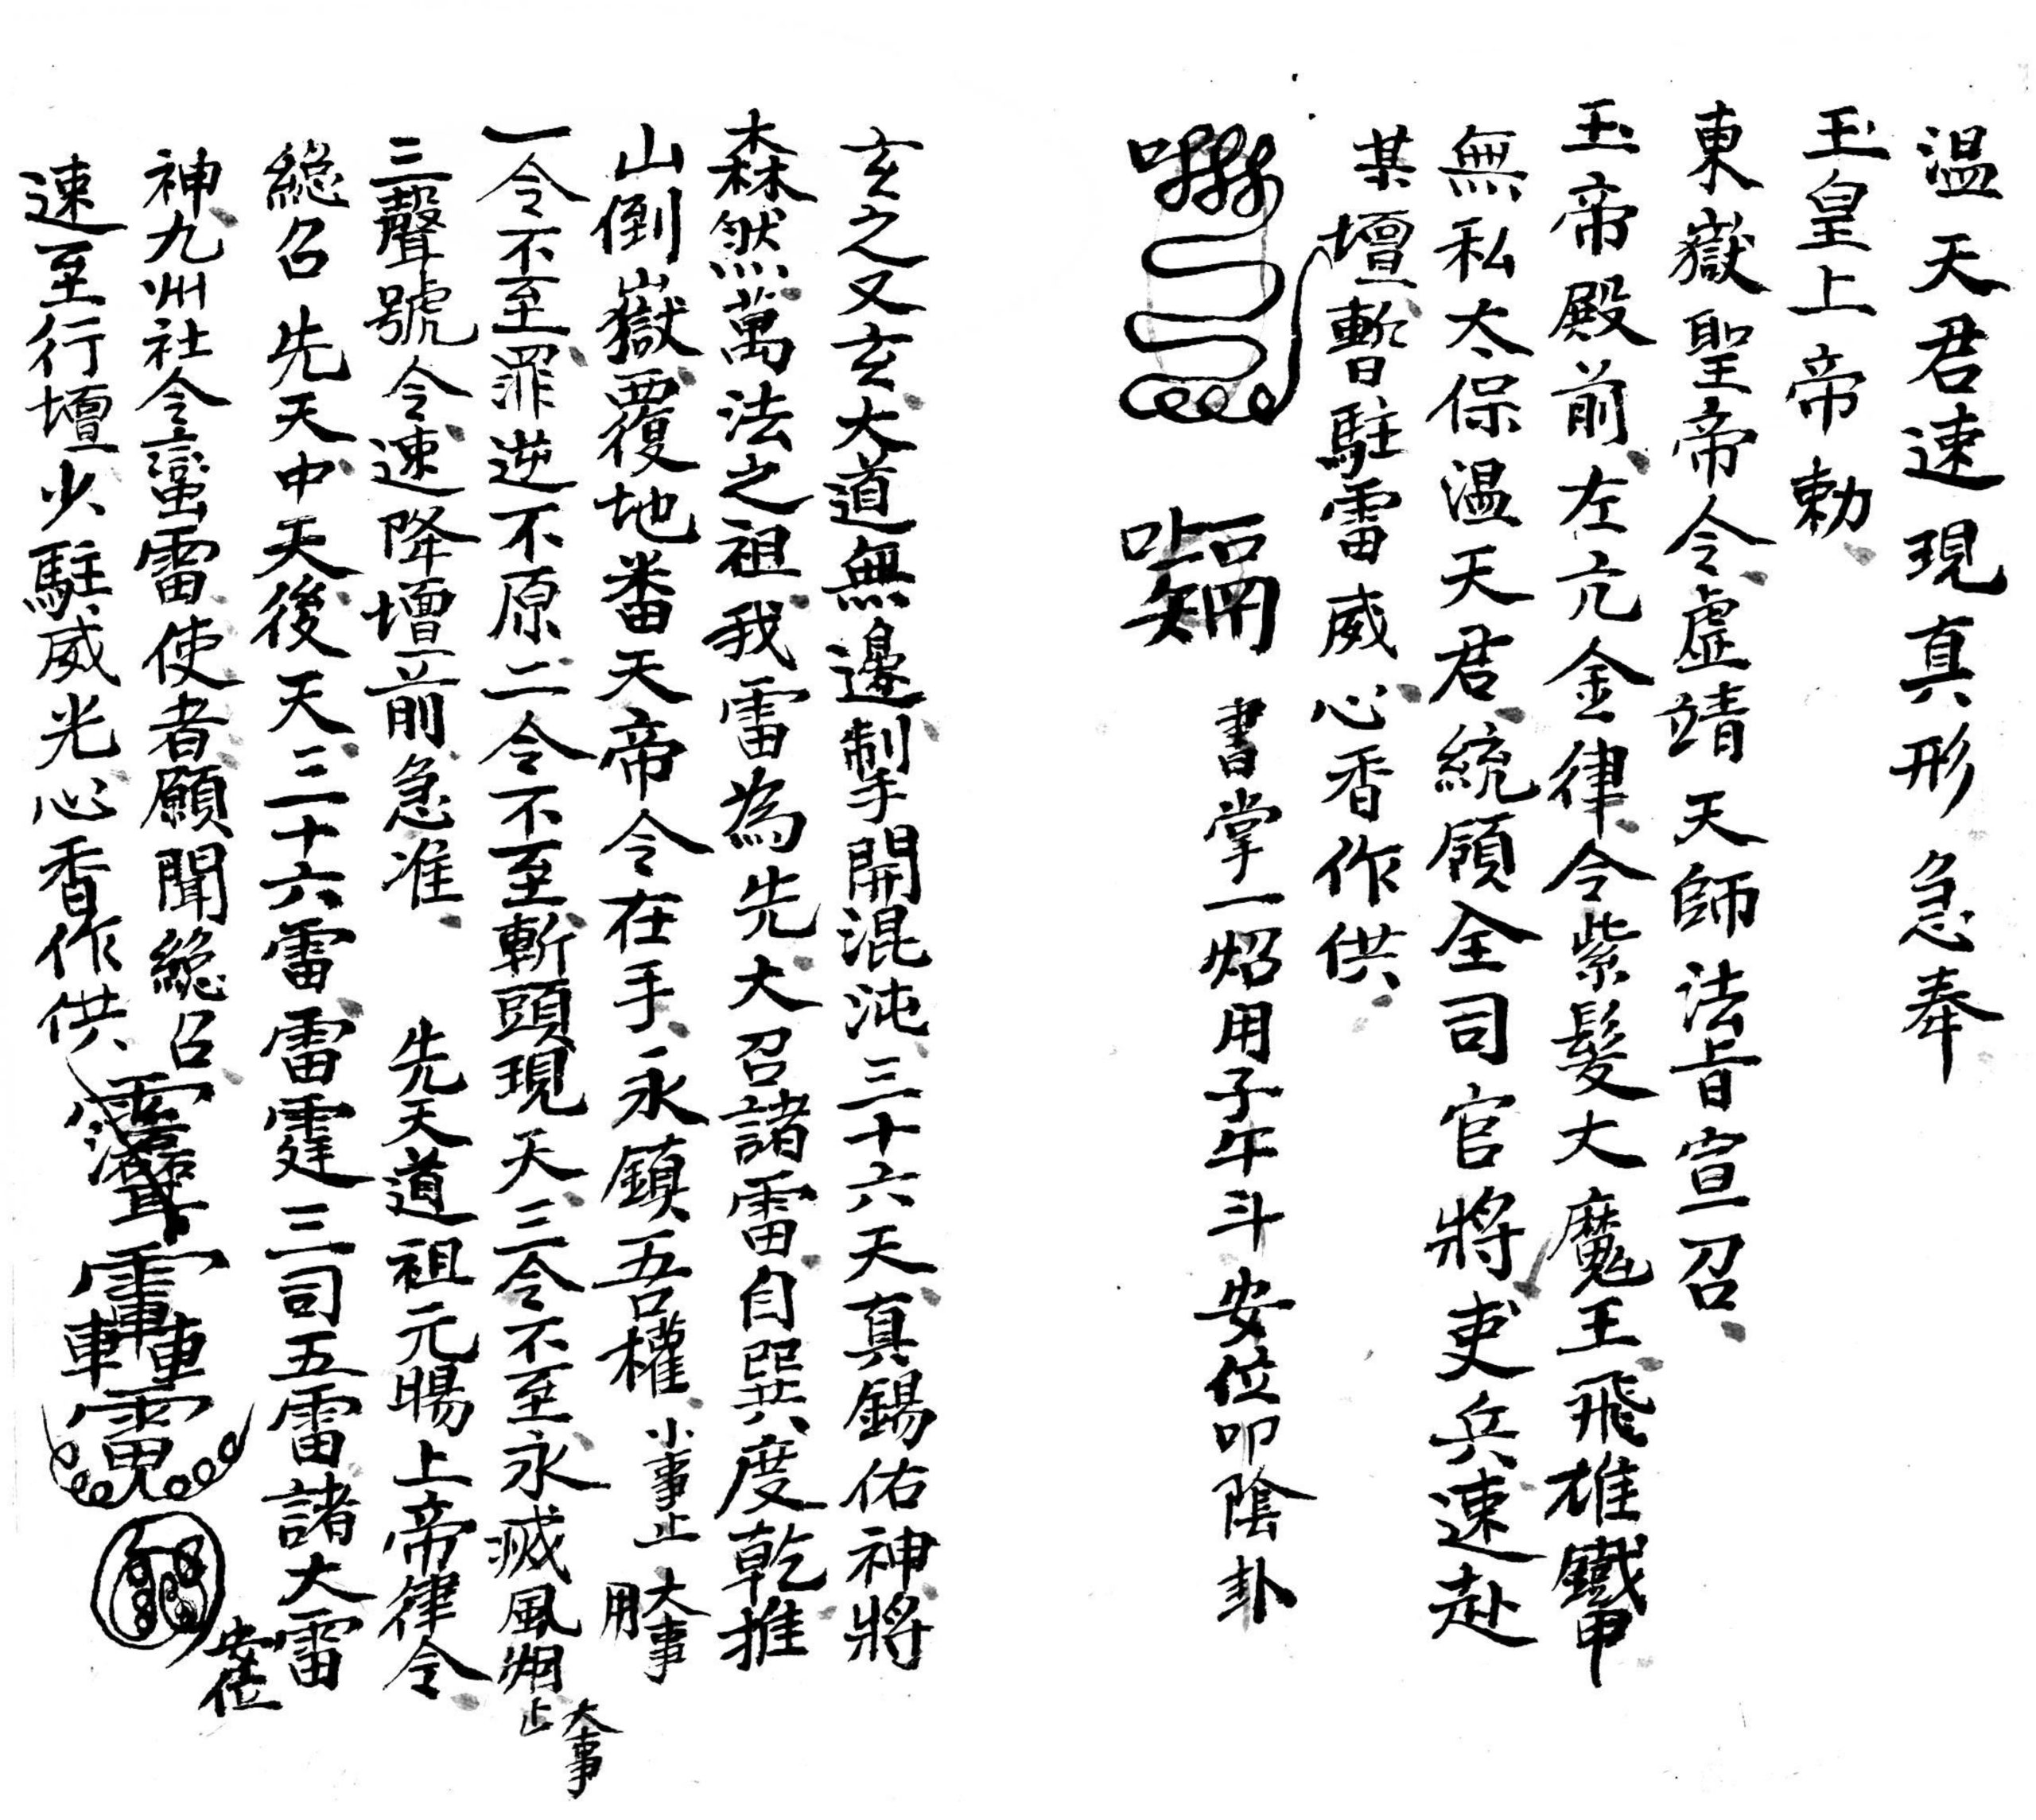 温天君速現真形急奉
玉皇上帝勅、
東嶽聖帝令、虛靖天師法旨宣召、
玉帝殿前、左亢金律令紫髮大魔王、飛雄鐵甲
無私太保温天君、統領全司官將吏兵、速赴
某壇、暫駐雷威、心香作供、
書掌一炤用子午斗安位叩陰卦
玄之又玄、大道無邊、掣開混沌、三十六天、真錫佑神將
森然、萬法之祖、我雷為先、大召諸雷、自巽度乾、推
山倒嶽、覆地番天、帝令在手、永鎮吾權、小事止 大事用
一令不至、罪逆不原、二令不至、斬頭現天、三令不至、永滅風烟、大事止
三聲號令、速降壇前、急准、 先天道祖元暘上帝律令、
總召 先天、中天、後天、三十六雷、雷霆三司、五雷諸大雷
神、九州社令蠻雷使者、願聞總召、
速至行壇、少駐威光、心香作供、
安位